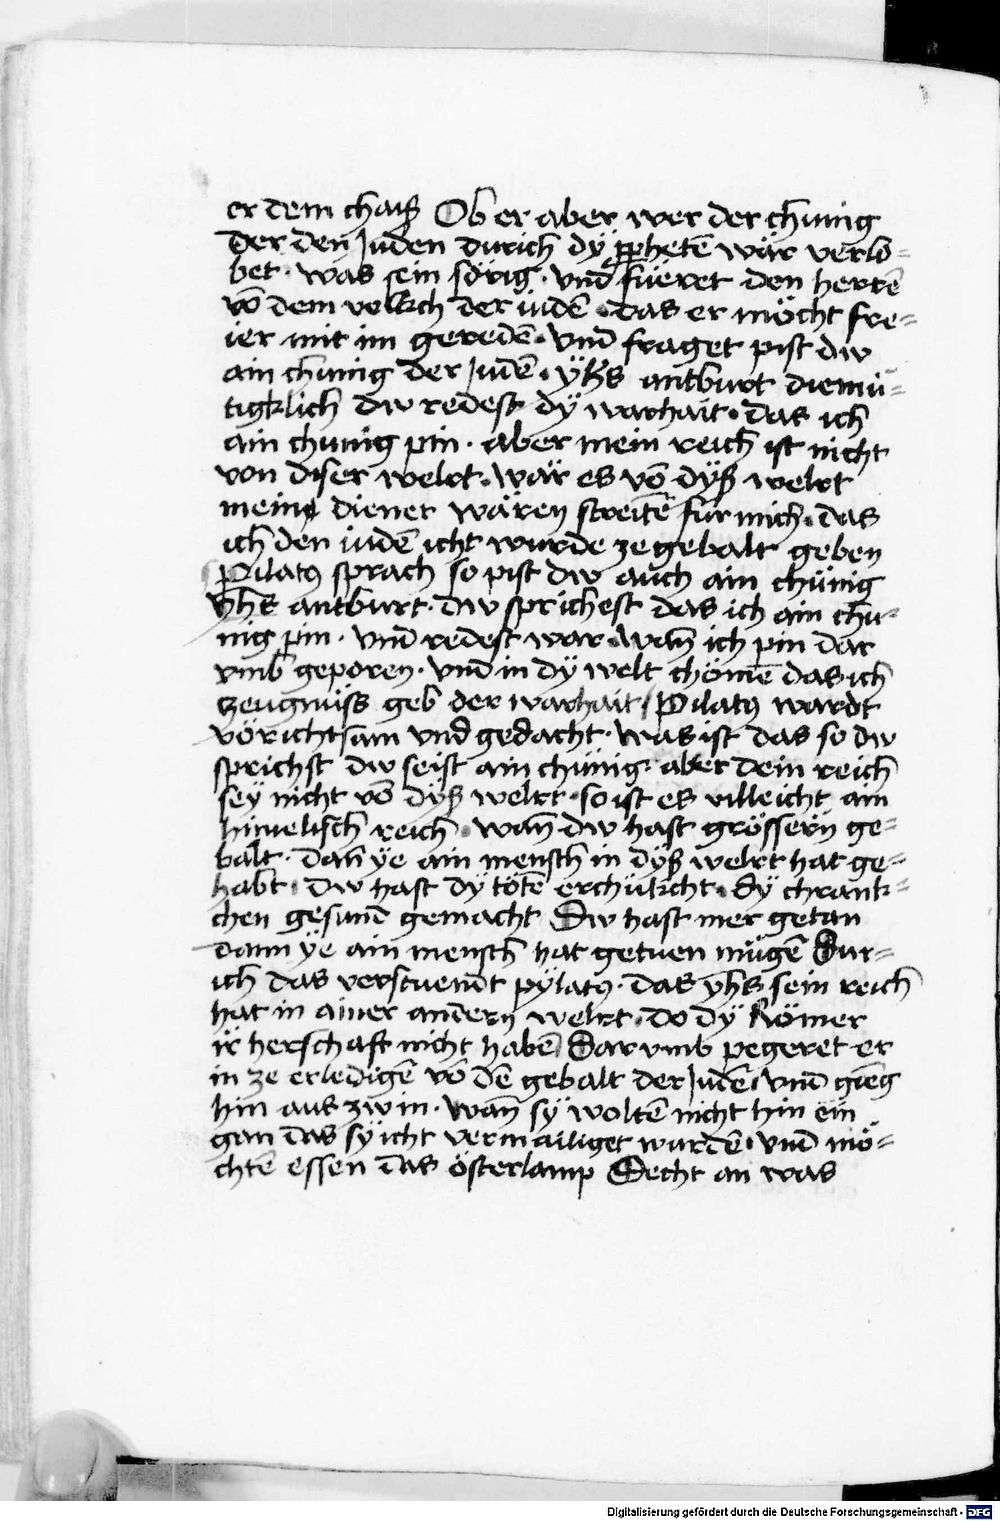 er dem chaiß Ob er aber wer der chunig
Der den Juden durich dÿ ꝓpheten̄ wär verlo=
bet · was sein sörig · vnd füeret den herren̄
vō dem volkch der iuden̄ · das er möcht fre=
ier mit im gereden̄ · vnd fraget pist dw
ain chunig der Juden̄ · yhs̄ antburt diemü=
tigklich dw redest dÿ warhait · das ich
ain chunig pin · aber mein reich ist nicht
von diser welrt · wär es vō dÿß welrt
meine diener wären streiten̄ für mich · das
ich den iuden̄ icht wurde ze gebalt geben
Pilatꝰ sprach so pist dw auch ain chünig
yhs̄ antburt · dw sprichest das ich ain chu=
nig pin · vnd redest war · wan̄ ich pin dar
vmb geporen · vnd in dÿ welt chömen̄ das ich
zeugnüss geb der warhait / Pilatꝰ wardt
vörichtsam vnd gedacht · was ist das so dw
sprichst dw seist ain chünig · aber dein reich
sey nicht vō dÿß welrt · so ist es villeicht ain
himelisch reich · wan̄ dw hast grössern ge=
balt · dan̄ ÿe ain mensch in dÿß welrt hat ge=
habt · dw hast dÿ töten̄ erchükcht · dÿ chrank=
chen gesund gemacht Dw hast mer getan
dann ÿe ain mensch hat getuen mügen̄ Dur=
ich das verstuendt pylatꝰ · das yhs̄ sein reich
hat in ainer andern welrt · do dÿ Römer
ir herschaft nicht haben̄ Darvmb pegeret er
in ze erledigen̄ vō den̄ gebalt der Juden̄ vnd gieng
hin aus zw in · wan̄ sÿ wolten̄ nicht hin ein
gan das sÿ icht vermailiget wurden̄ · vnd mö=
chten̄ essen das österlamp Secht an was
Digitalisierung gefördert durch die Deutsche Forschungsgemeinschaft - DFG